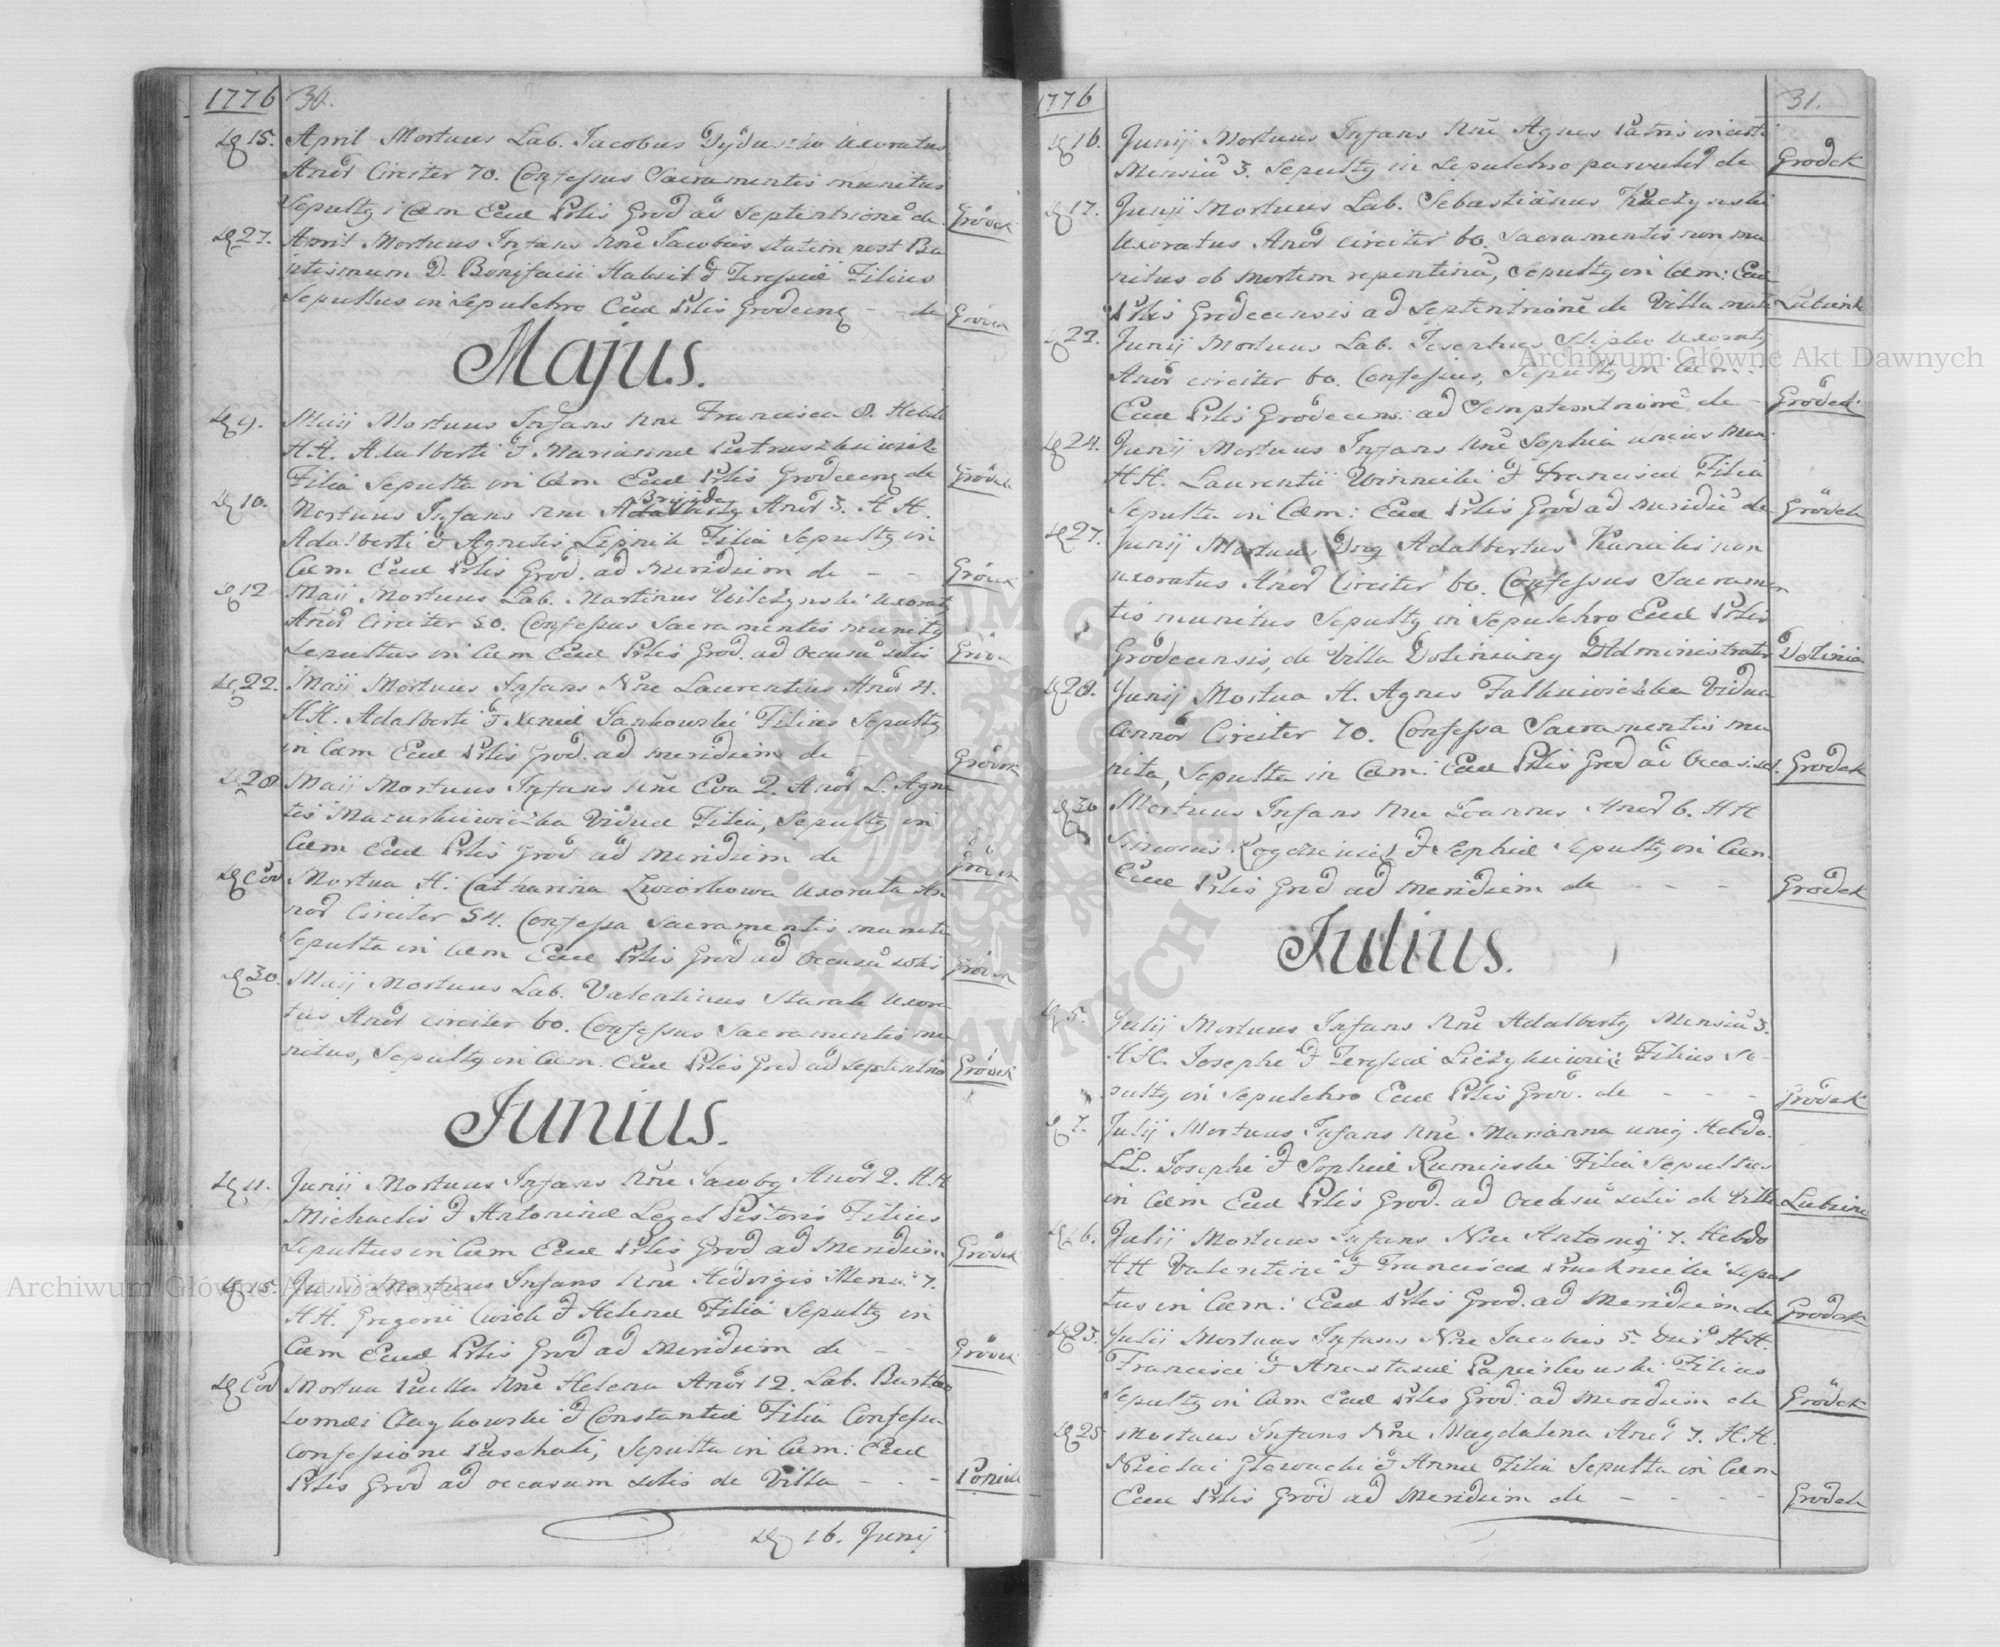 1776
30.
De 15. April Mortuus Lab. Jacobus Dyduszko uxoratus
Anor Circiter 70. Confessus Sacramentis munitus
Sepultq i Cæm Eccl Prlis Grod ad Septentrionē de Grodek
De 27. April Mortuus Infans Nnē Jacobus statim post Ba
ptismum D. Bonifacii Habsit & Teressiæ Filius
Sepultus in Sepulchro Eccl Prlis Grodecenq - - de Grodek
Majus.
De 9. Maij Mortuus Infans Nne Francisca 8. Hebd
H.H. Adalberti & Mariannæ Filia Sepulta in Cæm Eccl Prlis Grodecenq de Grodek
De 10. Mortuus Infans Nne Brigida Anor 3. H.H.
Adalberti & Agnetis Lipnik Filia Sepultq in
Cæm Eccl Prlis Grod. ad Meridiem de - - Grodek
De 12 Maii Mortuus Lab. Martinus Wilczynski uxoratq
Anor Circiter 50. Confessus Sacramentis munitq
Sepultus in Cæm Eccl Prlis Grod. ad Occasū solis Grodek
De 22. Maij Mortuus Infans Nne Laurentius Anor 4.
H.H. Adalberti & Xeniæ Jankowski Filius Sepultq
in Cæm Eccl Prlis Grod. ad meridiem de Grodek
De 28 Maij Mortuus Infans Nne Eva 2. Anor L. Agne
tis Mazurkiewiczka Viduæ Filia, Sepultq in
Cæm Eccl Prlis Grod ad meridiem de Grodek
De Eod Mortua H. Catharina uxorata An
nor Circiter 54. Confessa Sacramentis munita
Sepulta in Cæm Eccl Prlis Grod ad Occasū solis Grodek
De 30. Maij Mortuus Lab. Valentinus Starak uxora
tus Anor circiter 60. Confessus Sacramentis mu
nitus, Sepultq in Cæm. Eccl Prlis Grod ad septentrio Grodek
Junius.
De 11. Junii Mortuus Infans Nne Jacobq Anor 2. H.H
Michaelis & Antoninæ Legel Pistoris Filius
Sepultus in Cæm Eccl Prlis Grod ad Meridiem Grodek
De 15. Junii Mortuus Infans Nne Hedvigis Mens: 7.
H.H. Gregorii & Helenæ Filia Sepultq in
Cæm Eccl Prlis Grod ad Meridiem de - - Grodek
De Eod Mortua Puella Nne Helena Anor 12. Lab. Bartho
lomæi & Constantiæ Filia Confessa
Confessione Paschali, Sepulta in Cæm: Eccl
Prlis Grod ad occasum solis de Villa - - -
De 16. Junij
1776
31.
De 16. Junij Mortuus Infans Nne Agnes Patris incerti
Mensiū 3. Sepultq in Sepulchro parvulor de Grodek
De 17. Junij Mortuus Lab. Sebastianus Kaczynski
uxoratus Anor circiter 60. Sacramentis non mu
nitus ob mortem repentinā, Sepultq in Cæm: Eccl
Prlis Grodecensis ad Septentrionē de Villa
De 22. Junij Mortuus Lab. Josephus uxoratq
Anor circiter 60. Confessus, Sepultq in Cæm:
Eccl Prlis Grodecens: ad Semptemtrionē de - Grodek
De 24. Junij Mortuus Infans Nne Sophia unius Men:
H.H. Laurentii Winnicki & Franciscæ Filia
Sepulta in Cæm: Eccl Prlis Grod ad Meridiē de Grodek
De 27. Junij Mortuus Dnq Adalbertus non
uxoratus Anor Circiter 60. Confessus Sacramen
tis munitus Sepultq in Sepulchro Eccl Prlis
Grodecensis, de Villa Doliniany Administrator Dolinia
De 28. Junij Mortua H. Agnes Falkiewiczka Vidua
Annor Circiter 70. Confessa Sacramentis mu
nita, Sepulta in Cæm: Eccl Prlis Grod ad Occas: sol. Grodek
De 30 Mortuus Infans Nne Joannes Anor 6. H.H
Simonis & Sophiæ Sepultq in Cæm.
Eccl Prlis Grod ad Meridiem de - - - Grodek
Julius.
De 5. Julij Mortuus Infans Nne Adalbertq Mensiū 3.
H.H. Josephi & Teressiæ Filius Se-
pultq in Sepulchro Eccl Prlis Grod. de - - - Grodek
De 7. Julij Mortuus Infans Nne Marianna uniq Hebdo.
L.L. Josephi & Sophiæ Ruminski Filia Sepultus
in Cæm Eccl Prlis Grod. ad Occasū solis de Villa
De 16. Julij Mortuus Infans Nne Antoniq 7. Hebdo
H.H Valentini & Franciscæ Sepul
tus in Cæm: Eccl Prlis Grod. ad Meridiem de Grodek
De 23. Julij Mortuus Infans Nne Jacobus 5. H.H.
Francisci & Anastasiæ Filius
Sepultq in Cæm Eccl Prlis Grod: ad Meridiem de Grodek
De 25 Mortuus Infans Nne Magdalena Anor 7. H.H.
Nicolai Glowacki & Annæ Filia Sepulta in Cæm
Eccl Prlis Grod ad Meridiem de - - - - Grodek
Archiwum Główne Akt Dawnych
Archiwum Główne Akt Dawnych
ARCHIWUM GŁÓWNE AKT DAWNYCH